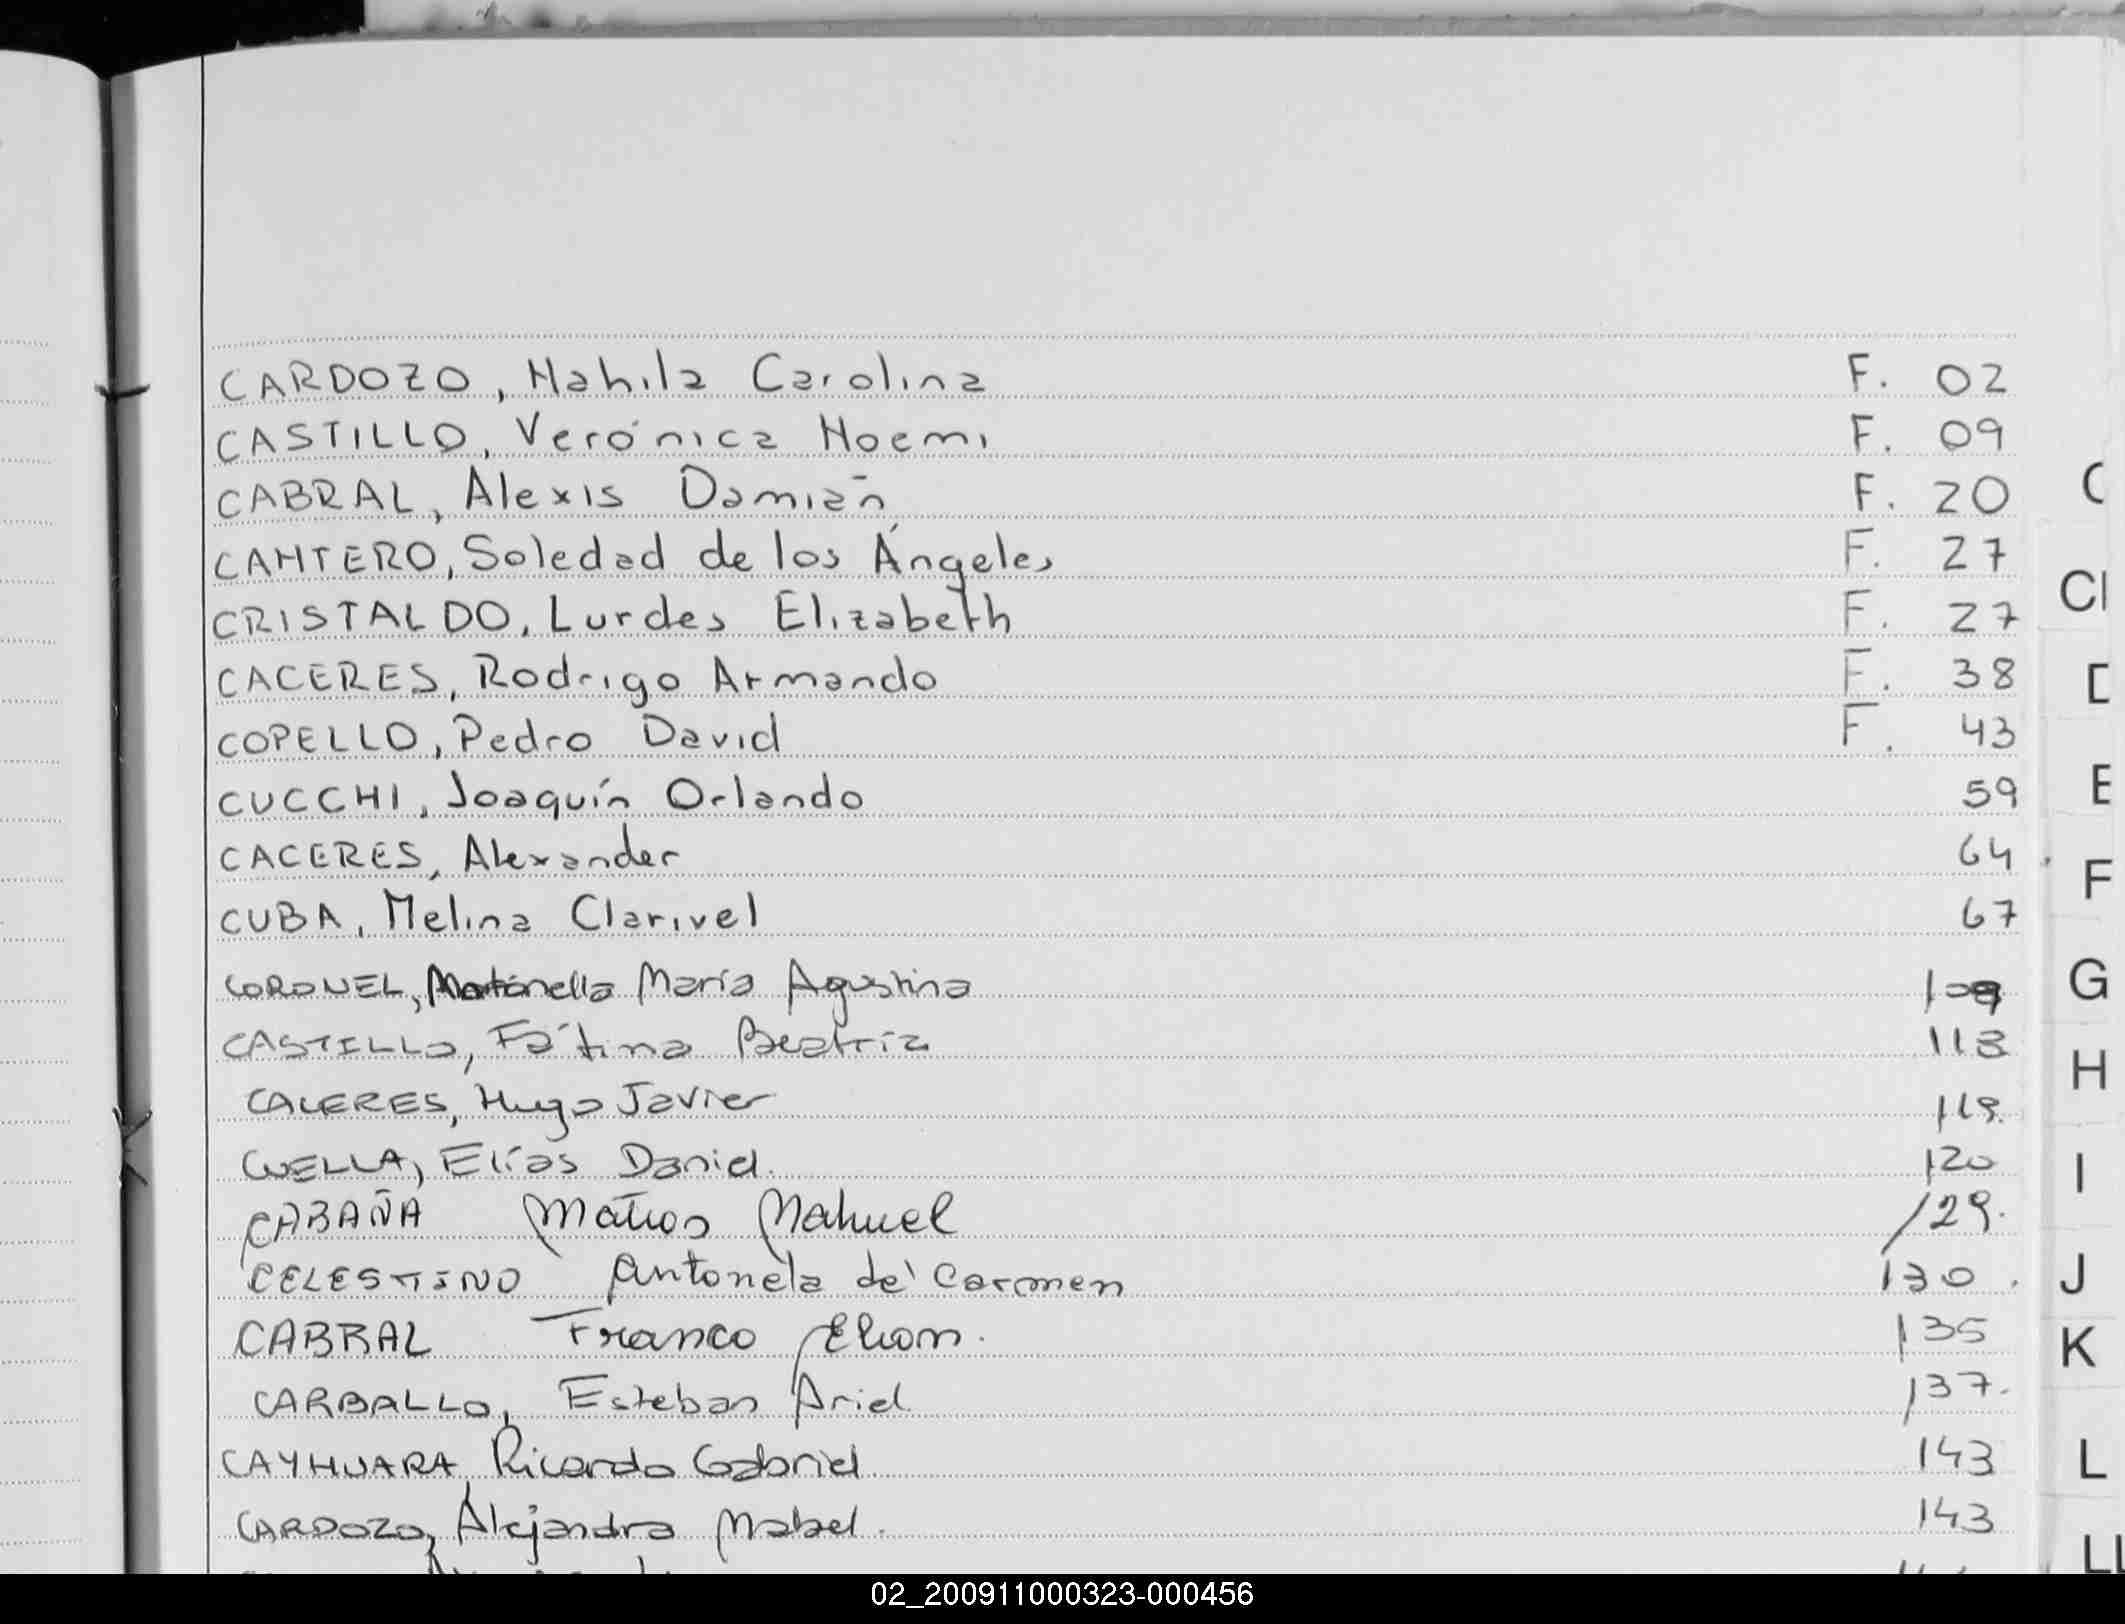 CARDOZO, Nahila Carolina F. 02
CASTILLO, Verónica Noemi F. 09
CABRAL, Alexis Damián F. 20
CANTERO, Soledad de los Ángeles F. 27
CRISTALDO, Lurdes Elizabeth F. 27
CACERES, Rodrigo Armando F. 38
COPELLO, Pedro David F. 43
CUCCHI, Joaquín Orlando 59
CACERES, Alexander 64
CUBA, Melina Clarivel 67
CORONEL, María Agustina 109
CASTILLO, Fátima Beatriz 113
CACERES, Hugo Javier 119.
CUELLA, Elías Daniel. 120
CABAÑA Matias Nahuel 129.
CELESTINO Antonela del Carmen 130.
CABRAL Franco Elian. 135
CARBALLO, Esteban Ariel 137.
CAYHUARA, Ricardo Gabriel 143
CARDOZO, Alejandra Mabel. 143
C
Cl
D
E
F
G
H
I
J
K
L
LL
02_200911000323-000456